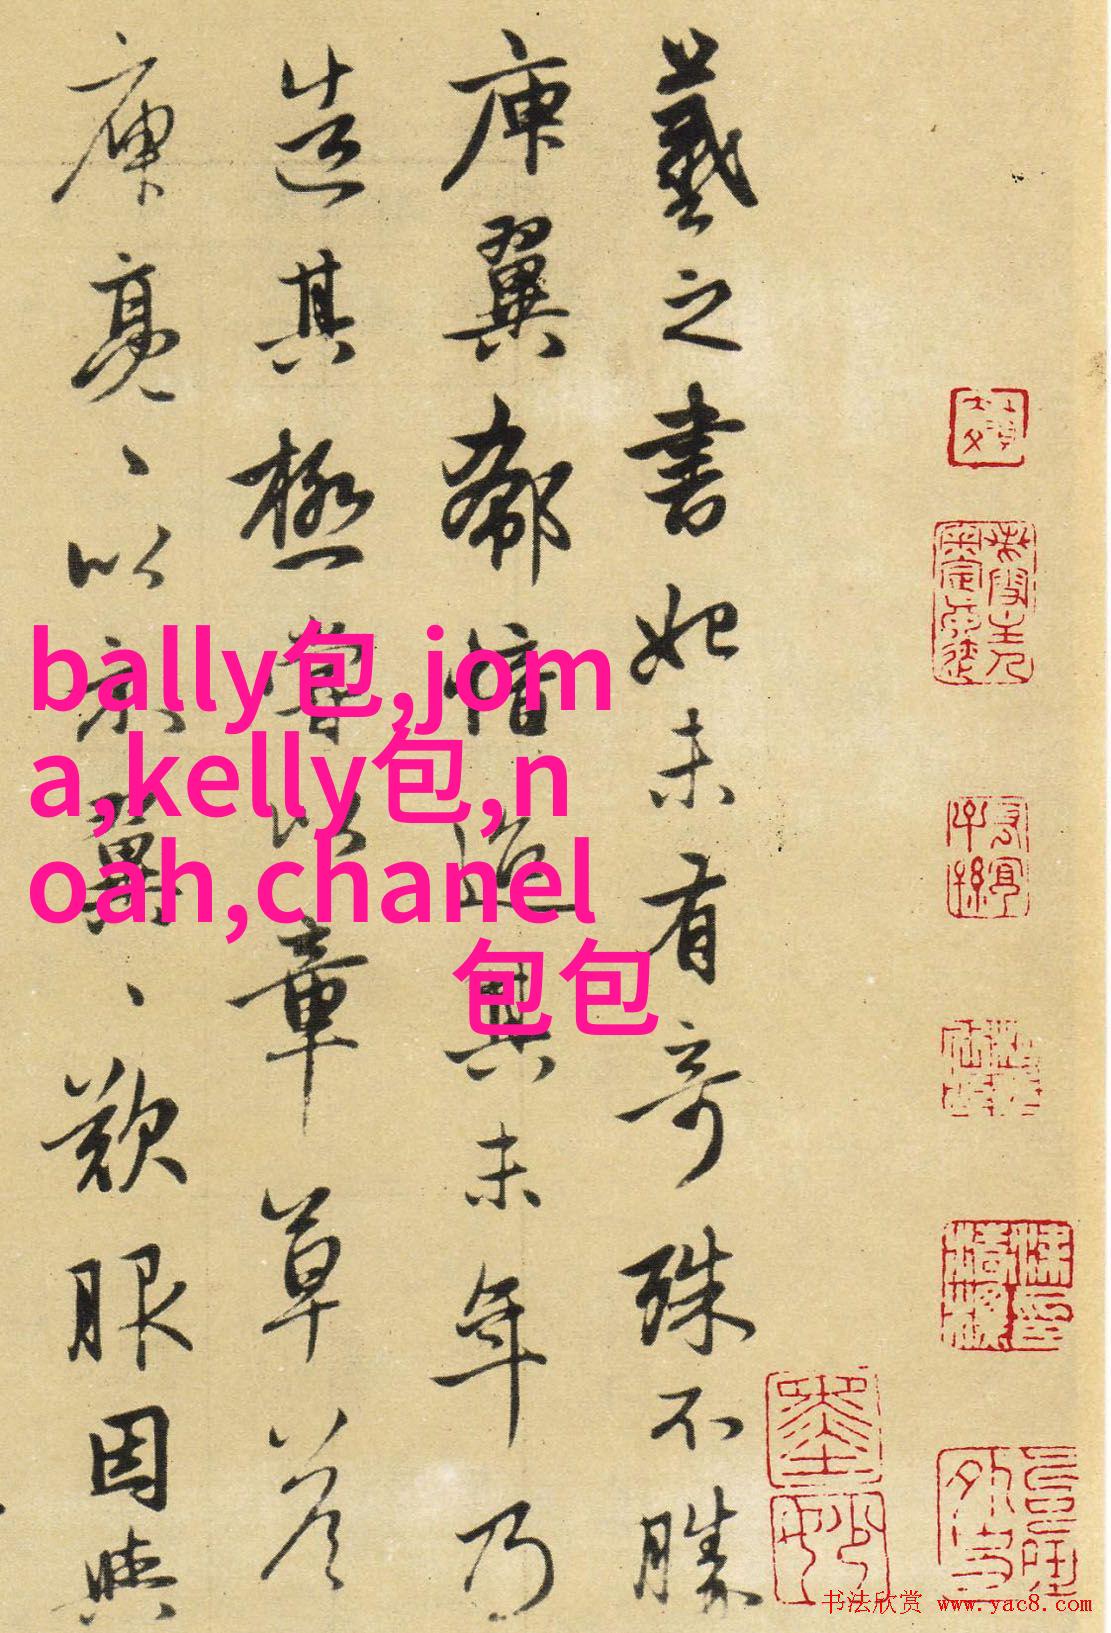 羲之書始未有奇殊不勝
庾翼郗愔迨其末年乃
造其極嘗以章草答
庾亮、以示翼、歎服因與
bally包,jom
a,kelly包,n
oah,chanel
包包
书法欣赏 www.yac8.com